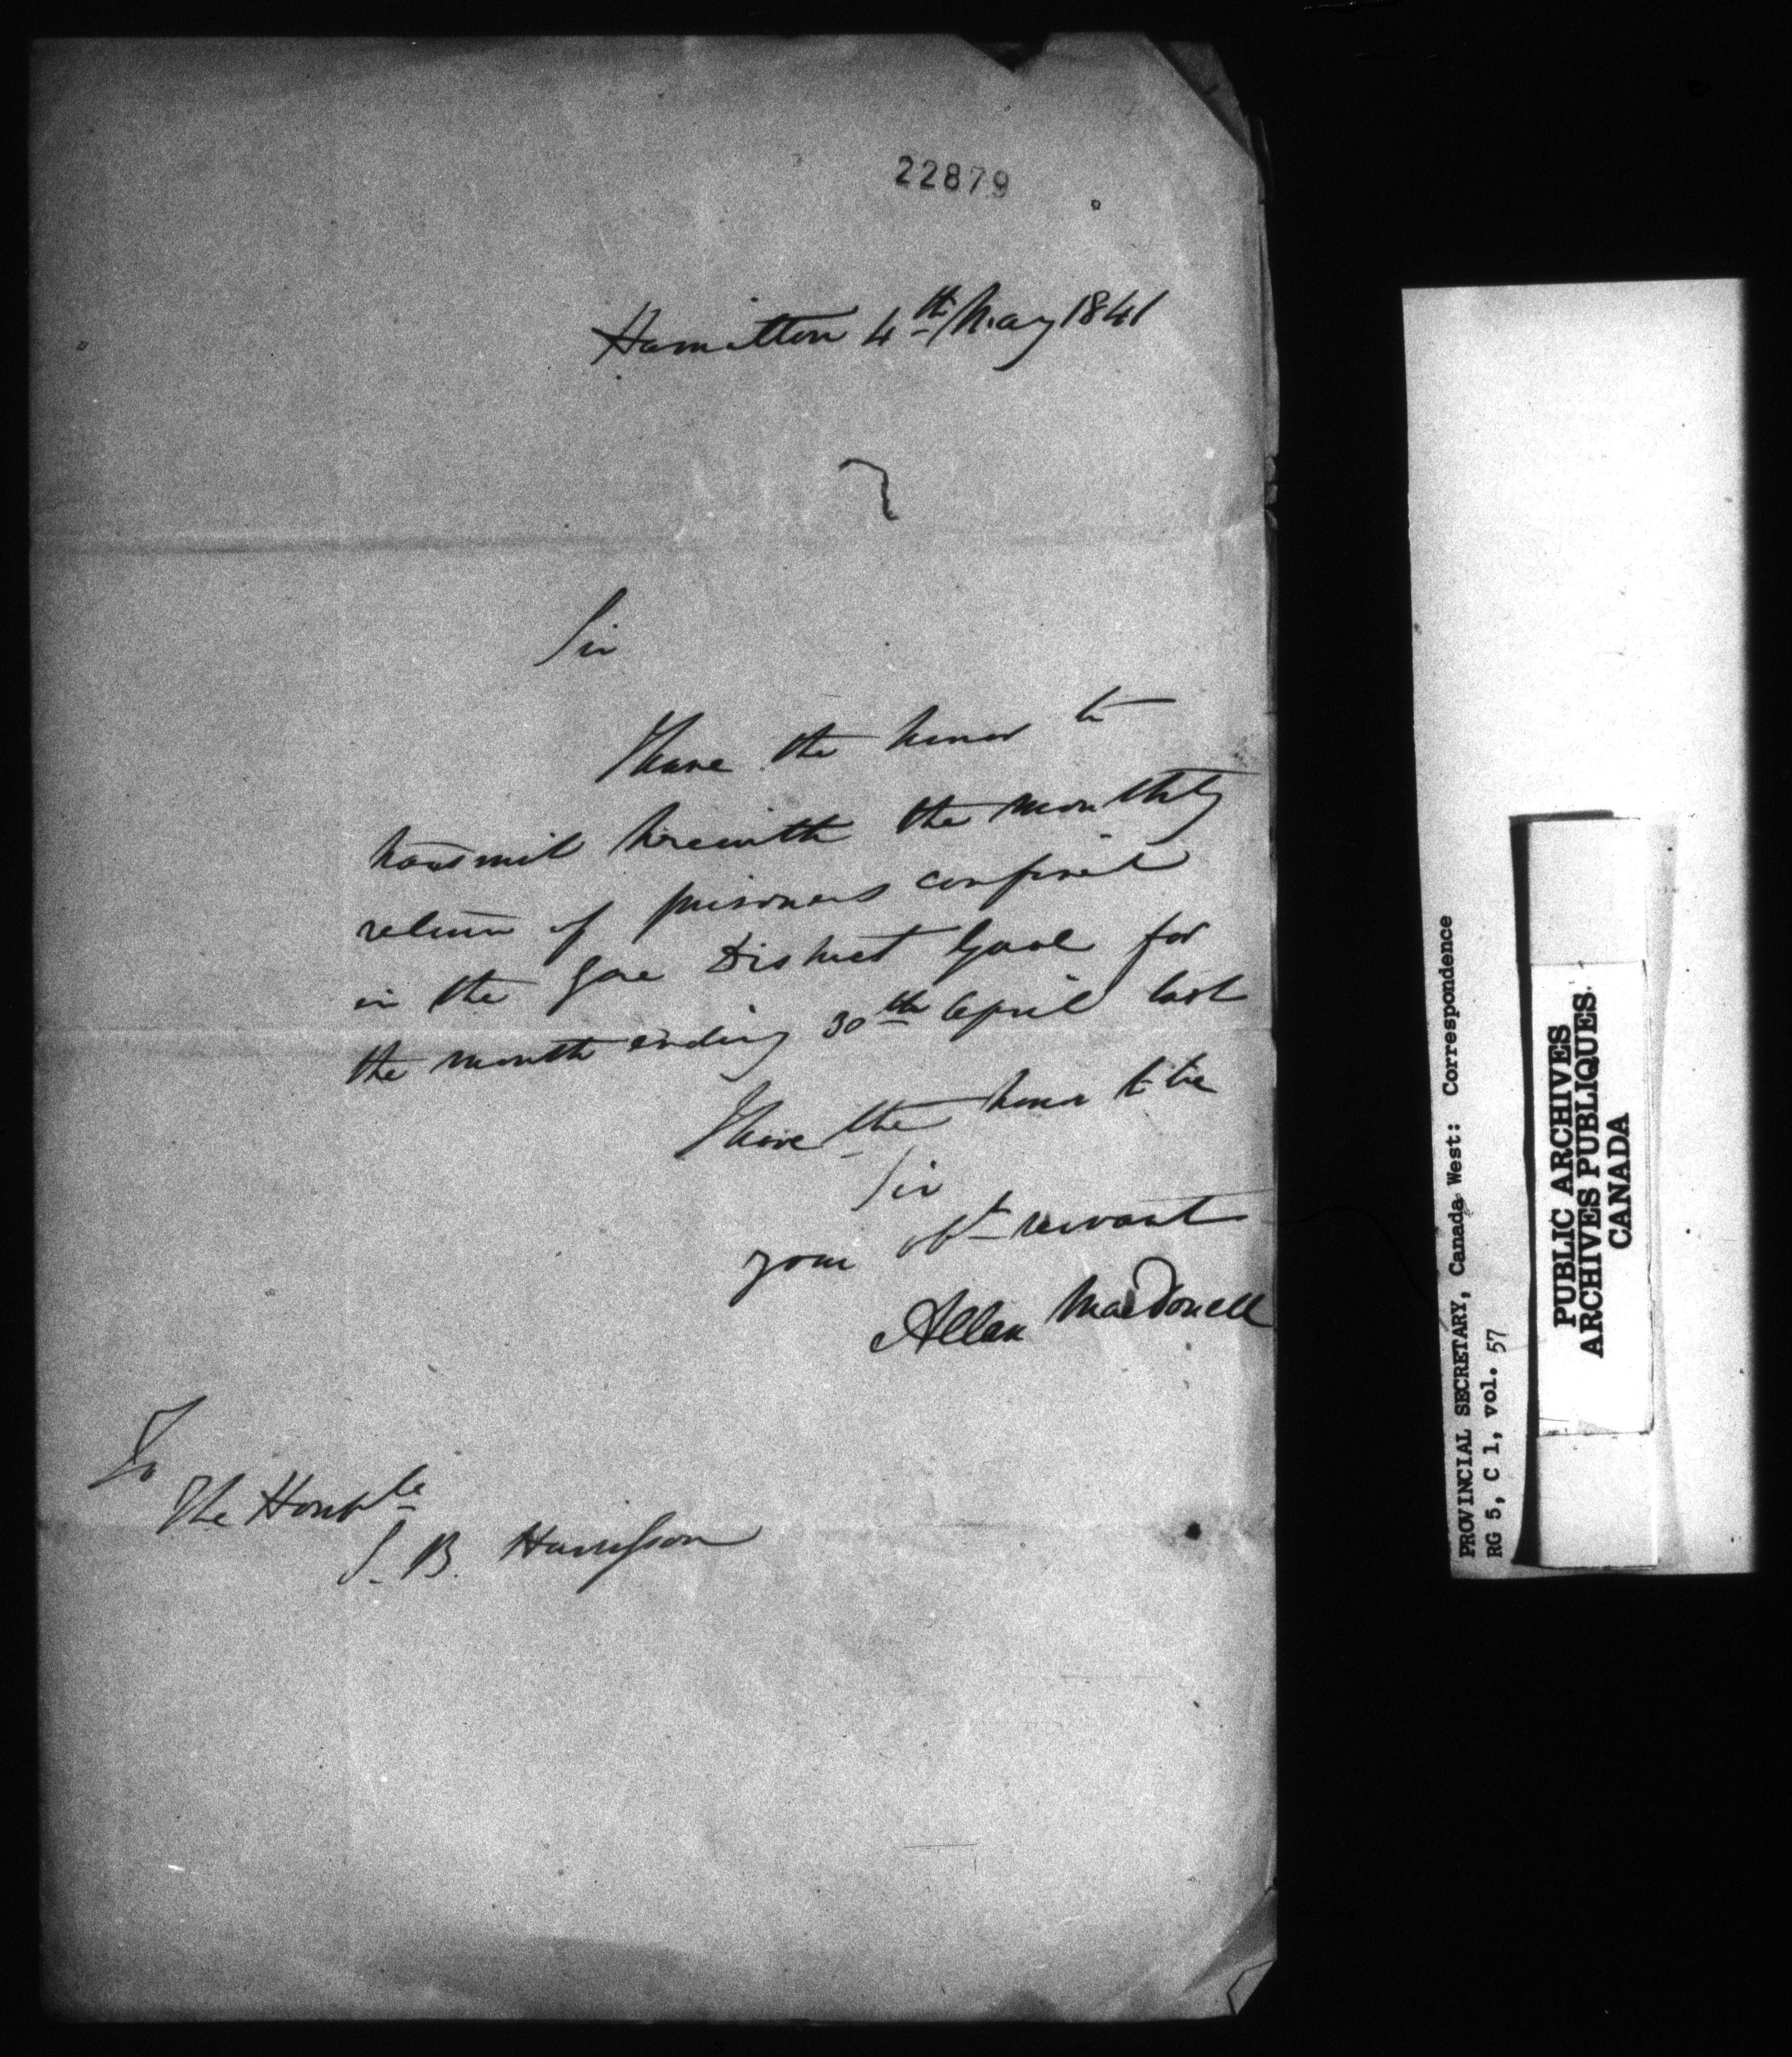 22879
Hamilton 4th May 1841
Sir
I have the honor to
transmit herewith the monthly
return of prisoners confined
in the Gore District Gaol for
the month ending 30th April last
I have the honor to be
Sir
your obt servant
Allan MacDonell
To
The Honble
S. B. Harrison
PROVINCIAL SECRETARY, Canada West: Correspondence
RG 5, C 1, vol. 57
PUBLIC ARCHIVES
ARCHIVES PUBLIQUES
CANADA